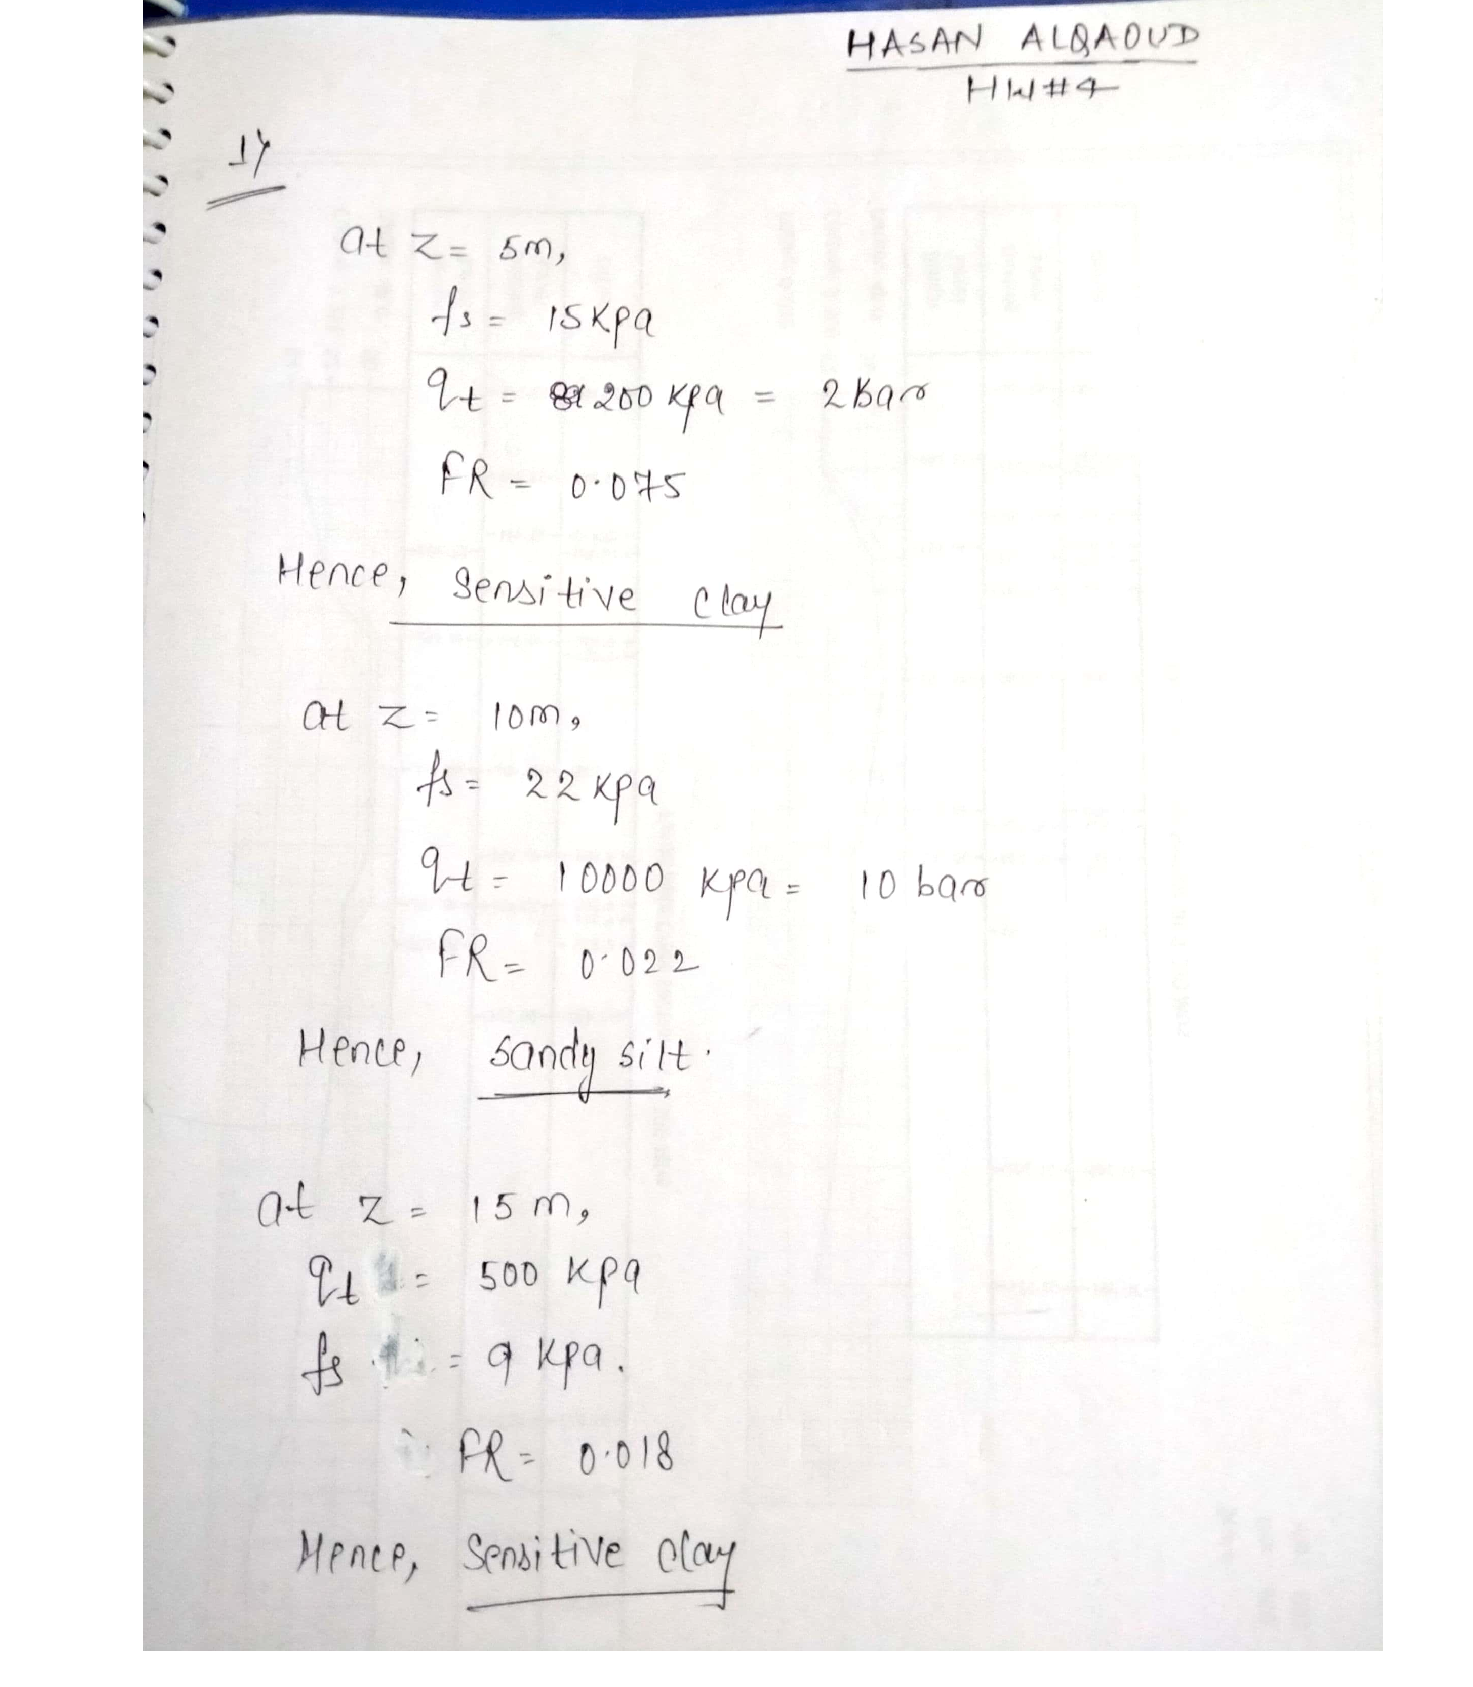 HASAN ALQAOUD
HW#4
1)
at z = 5m,
fs = 15 kpa
qt = 200 kpa = 2 Bar
FR = 0.075
Hence, Sensitive clay
at z = 10m,
fs = 22 kpa
qt = 10000 kpa = 10 bar
FR = 0.022
Hence, sandy silt.
at z = 15 m,
qt = 500 kpa
fs = 9 kpa.
FR = 0.018
Hence, Sensitive clay